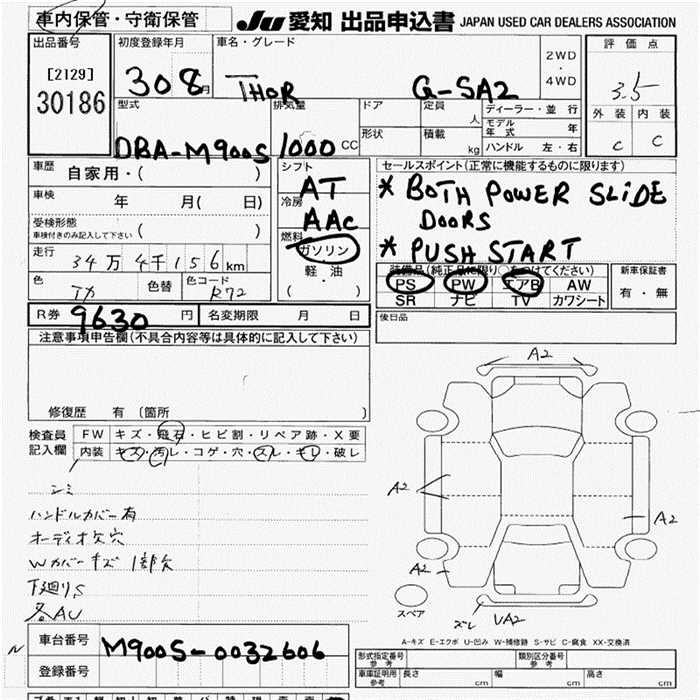 車内保管・守衛保管
JU 愛知 出品申込書 JAPAN USED CAR DEALERS ASSOCIATION
出品番号
[2129]
30186
初度登録年月
30 8月
車名・グレード
THOR G-SA2
2WD
・
4WD
評価点
3.5
外装 内装
C C
型式
DBA-M900S
排気量
1000 CC
ドア
形状
定員 人
積載 kg
ディーラー・並行
モデル年式 年
ハンドル 左・右
車歴
自家用・( )
車検
年 月( 日)
受検形態
車検付きのみ記入して下さい ( )
走行
34万4千156km
色
色替
色コード
R72
シフト
AT
冷房
AAC
燃料
ガソリン
軽・油
( ・ )
セールスポイント(正常に機能するものに限ります)
* BOTH POWER SLIDE
DOORS
* PUSH START
装備品(純正品に限り○をつけてください)
PS PW エアB AW
SR ナビ TV カワシート
新車保証書
有・無
後日品
R券 9630 円
名変期限 月 日
注意事項申告欄(不具合内容等は具体的に記入して下さい)
修復歴 有 (箇所 )
検査員
記入欄
FW キズ・飛石・ヒビ割・リペア跡・X要
内装 キズ・汚レ・コゲ・穴・スレ・キレ・破レ
シミ
ハンドルカバー有
オーディオ欠穴
Wカバーキズ 1部欠
下廻りS
各AU
A2
A2
A2
A2
スレ UA2
スペア
A-キズ E-エクボ U-凹み W-補修跡 S-サビ C-腐食 XX-交換済
N
車台番号
M900S-0032606
登録番号
形式指定番号
参考
類別区分番号
参考
車庫証明用
参考
長さ cm 幅 cm 高さ cm